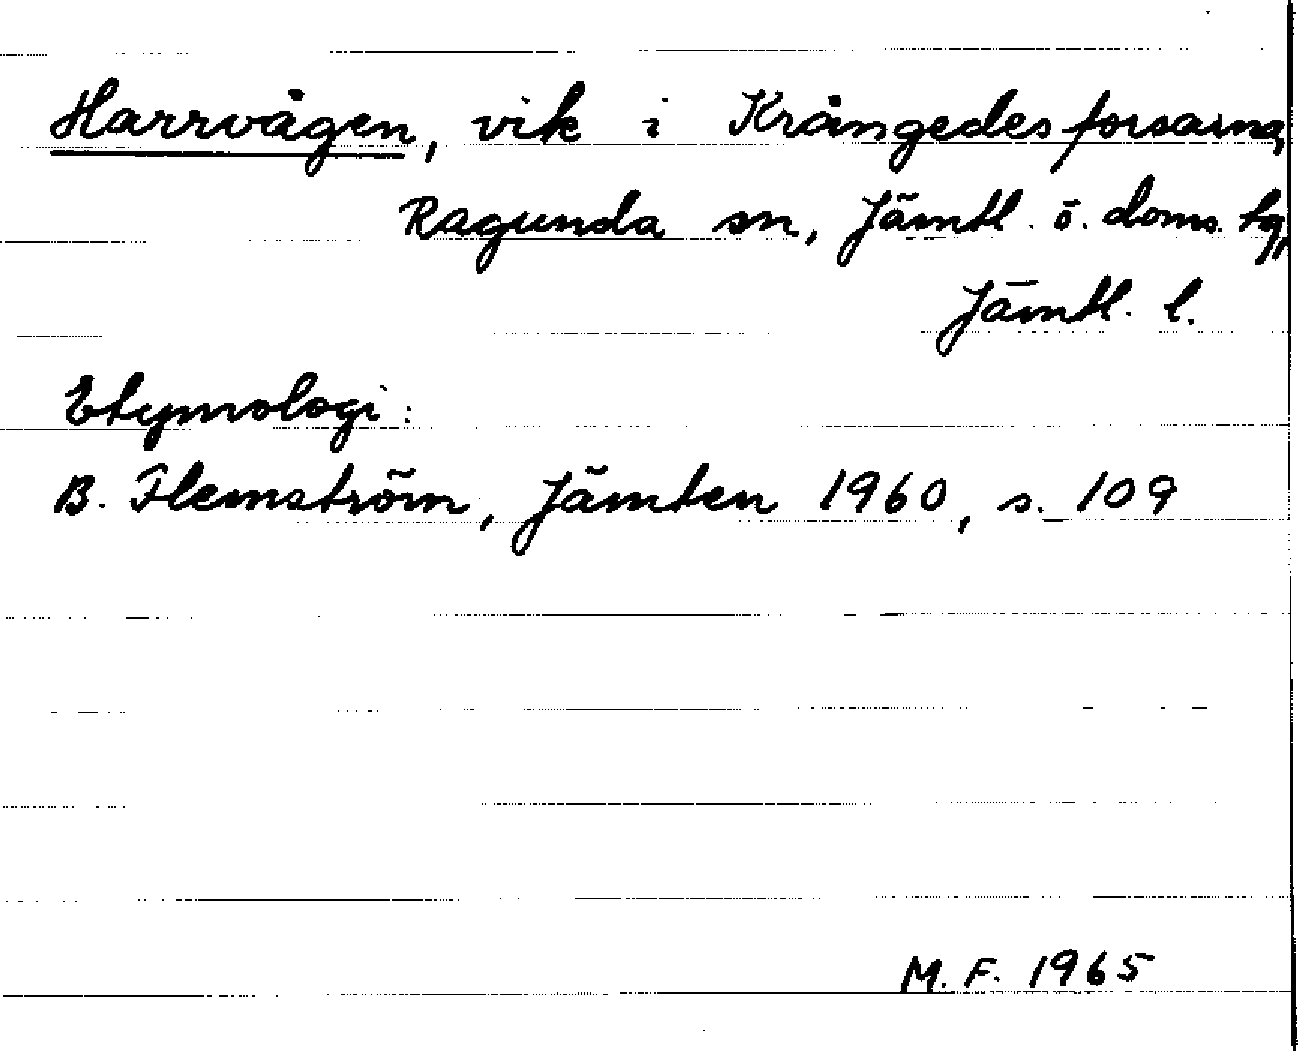 Harrvågen, vik i Krångedesforsarna,
Ragunda sn, Jämtl. ö. doms. tg,
Jämtl. l.
Etymologi:
B. Flemström, Jämten 1960, s. 109
M. F. 1965